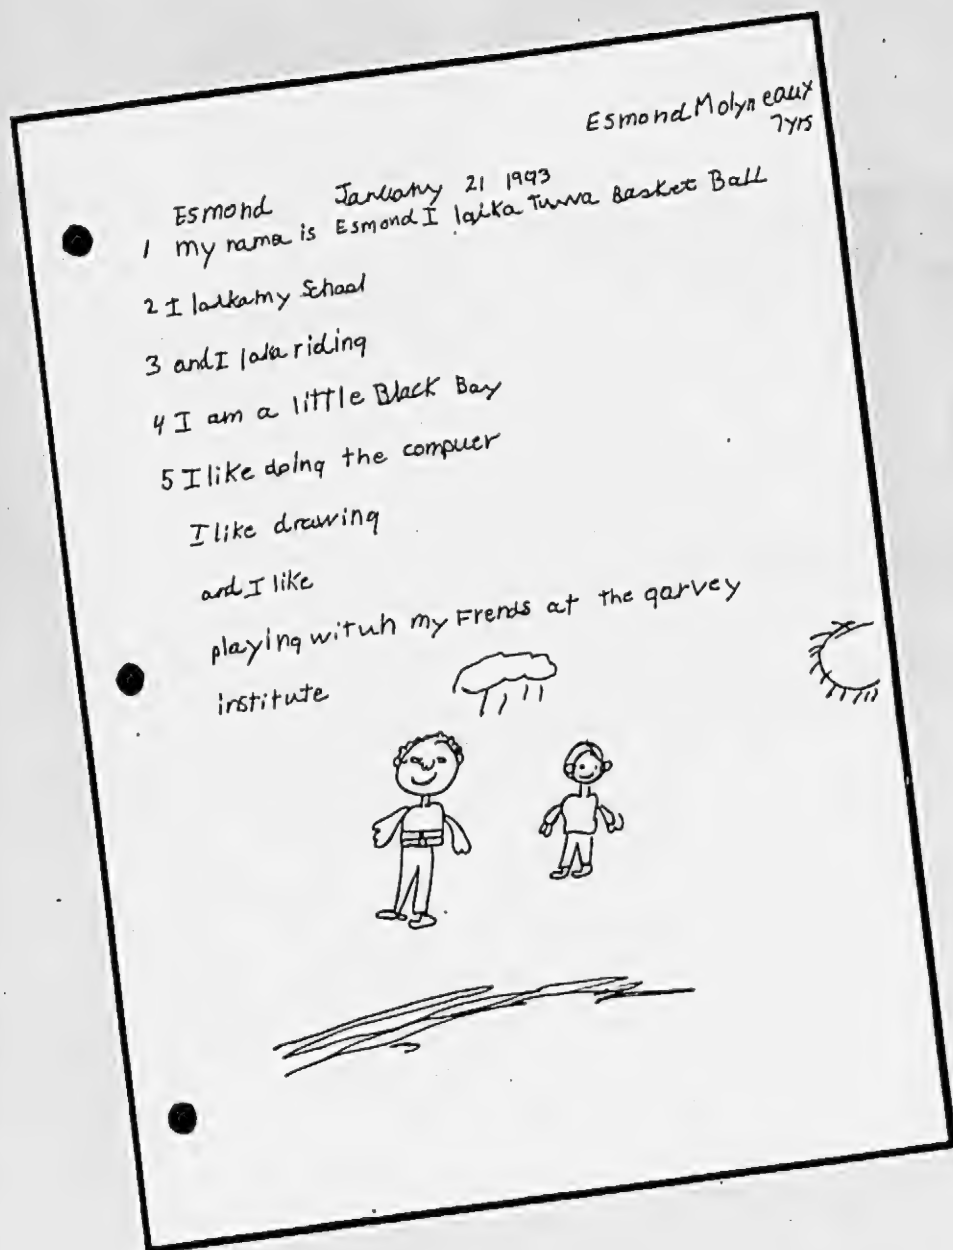 Esmond Molyneaux
7yrs
Esmond January 21 1993
1 my nama is Esmond I laika Tuwa Basket Ball
2 I laikamy School
3 and I laka riding
4 I am a little Black Bay
5 I like doing the compuer
I like drawing
and I like
playing wituh my Frends at the garvey
institute